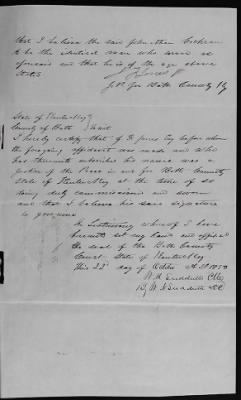 that I believe the said Johnathan Cochran
to be the identical man who
and that he is of the age above
stated
J. P. for Bath County Ky
State of Kentucky
County of Bath Sct
I hereby certify that J. F. Jones Esq before whom
the foregoing affidavit was made and who
has thereunto subscribed his name was a
Justice of the Peace in and for Bath County
State of Kentucky at the time of so
doing duly commissioned and sworn
and that I believe his same signature
is genuine
In Testimony whereof I have
hereunto set my hand and affixed
the seal of the Bath County
Court State of Kentucky
This 22 day of
W. S. Sudduth
By W. S. Sudduth DC